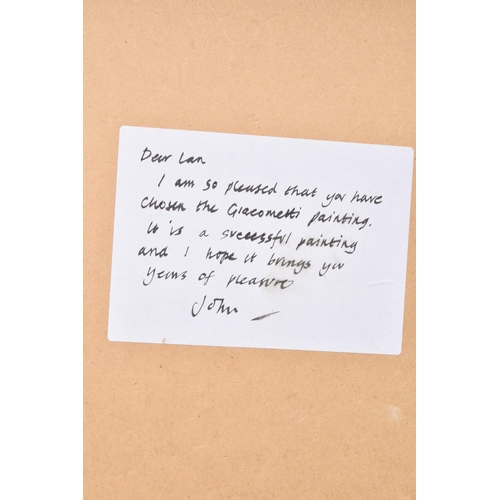 Dear Ian
I am so pleased that you have
chosen the Giacometti painting.
It is a successful painting
and I hope it brings you
years of pleasure
John